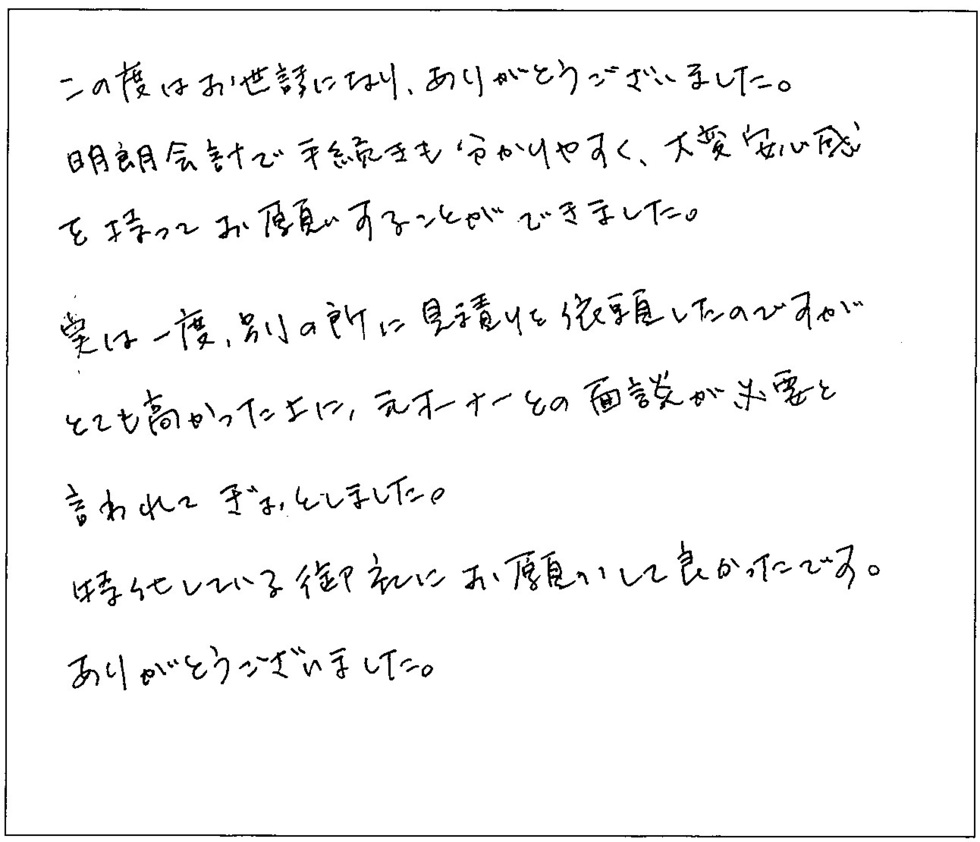 この度はお世話になり、ありがとうございました。
明朗会計で手続きも分かりやすく、大変安心感
を持ってお願いすることができました。
実は一度、別の所に見積りを依頼したのですが
とても高かった上に、元オーナーとの面談が必要と
言われてぎょっとしました。
特化している御社にお願いして良かったです。
ありがとうございました。